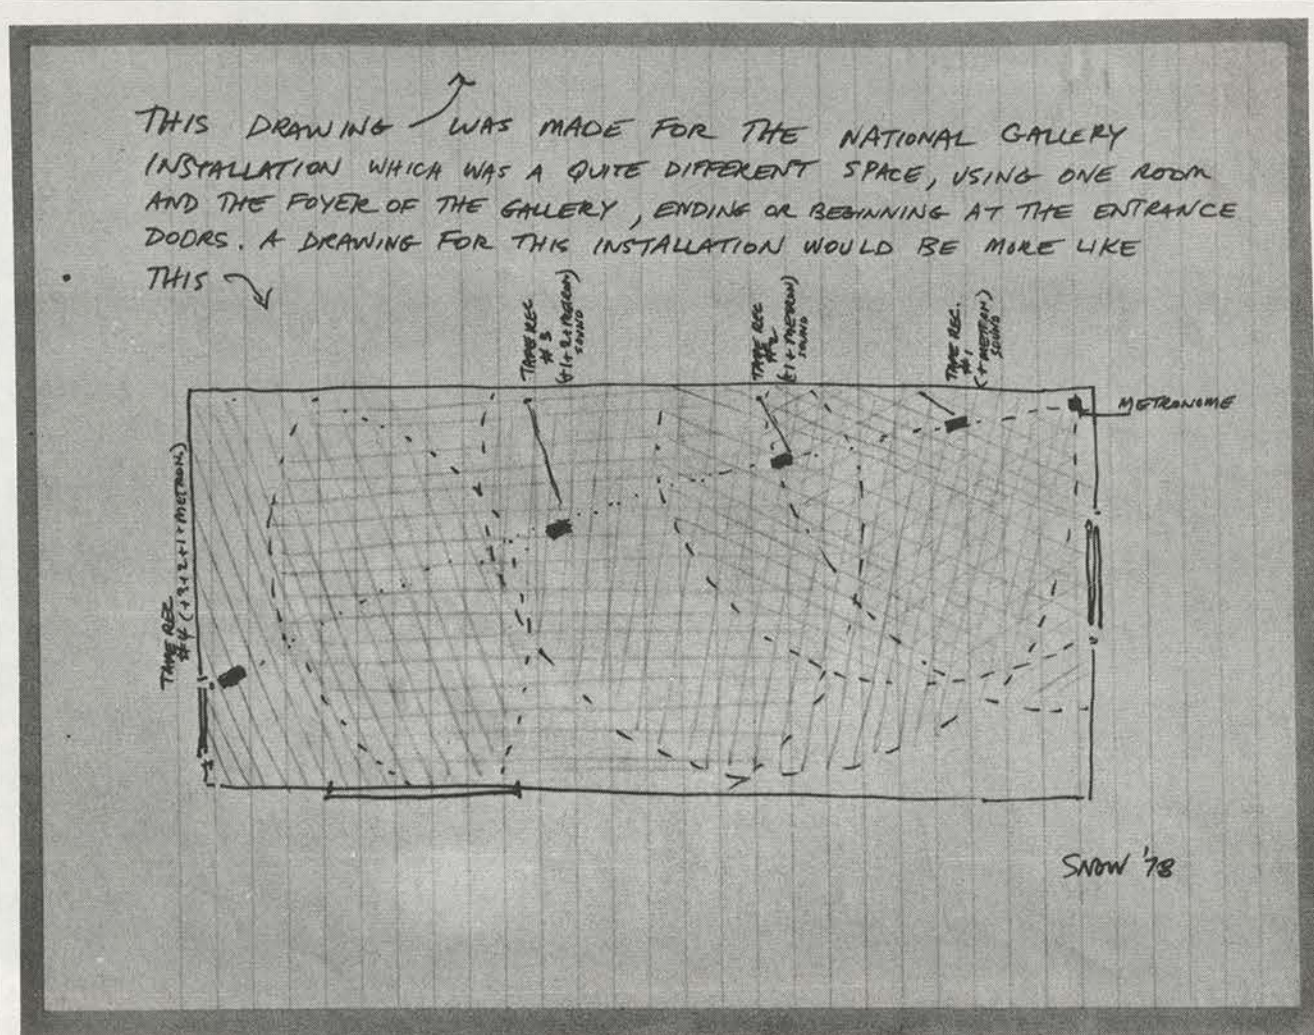 THIS DRAWING WAS MADE FOR THE NATIONAL GALLERY
INSTALLATION WHICH WAS A QUITE DIFFERENT SPACE, USING ONE ROOM
AND THE FOYER OF THE GALLERY, ENDING OR BEGINNING AT THE ENTRANCE
DOORS. A DRAWING FOR THIS INSTALLATION WOULD BE MORE LIKE
THIS
TAPE REC
#3
(+1+2+METRON)
SOUND
TAPE REC
#2
(+1+METRON)
SOUND
TAPE REC.
#1
(+METRON)
SOUND
METRONOME
TAPE REC
#4 (+3+2+1+METRON)
SNOW '78